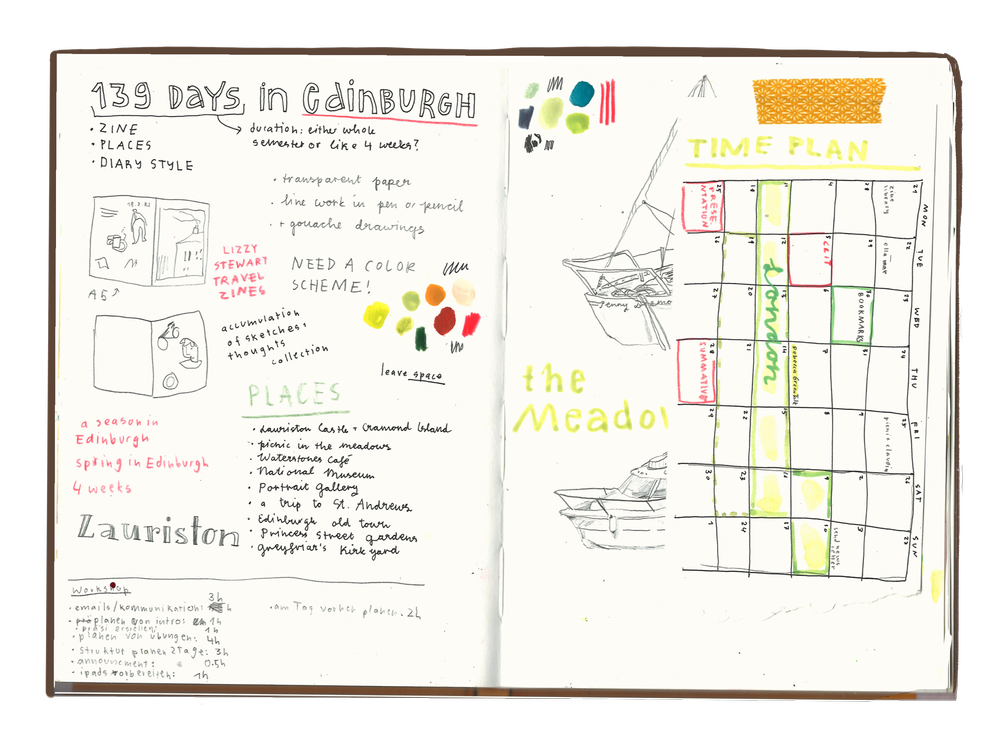 139 DAYS in EDINBURGH
• ZINE
• PLACES
• DIARY STYLE
duration: either whole
semester or like 4 weeks?
• transparent paper
• line work in pen or pencil
• + gouache drawings
A5
LIZZY
STEWART
TRAVEL
ZINES
NEED A COLOR
SCHEME!
accumulation
of sketches,
thoughts
collection
leave space
a season in
Edinburgh
spring in Edinburgh
4 weeks
PLACES
• Lauriston Castle + Cramond Island
• picnic in the meadows
• Waterstones Café
• National Museum
• Portrait Gallery
• a trip to St. Andrews
• Edinburgh old town
• Princess Street gardens
• greyfriar's Kirkyard
Lauriston
Workshop
• emails/kommunikation: 3h
• planen von intro: 1h
• präsi erstellen: 1h
• planen von übungen: 4h
• Struktur planen 2Tage: 3h
• announcement: 0.5h
• ipads vorbereiten: 1h
• am Tag vorher planen. 2h
the
Meadow
TIME PLAN
MON
TUE
WED
THU
FRI
SAT
SUN
zine library
PRESENTATION
BOOKMARKS
London
SUMMATIVE
picnic claudia